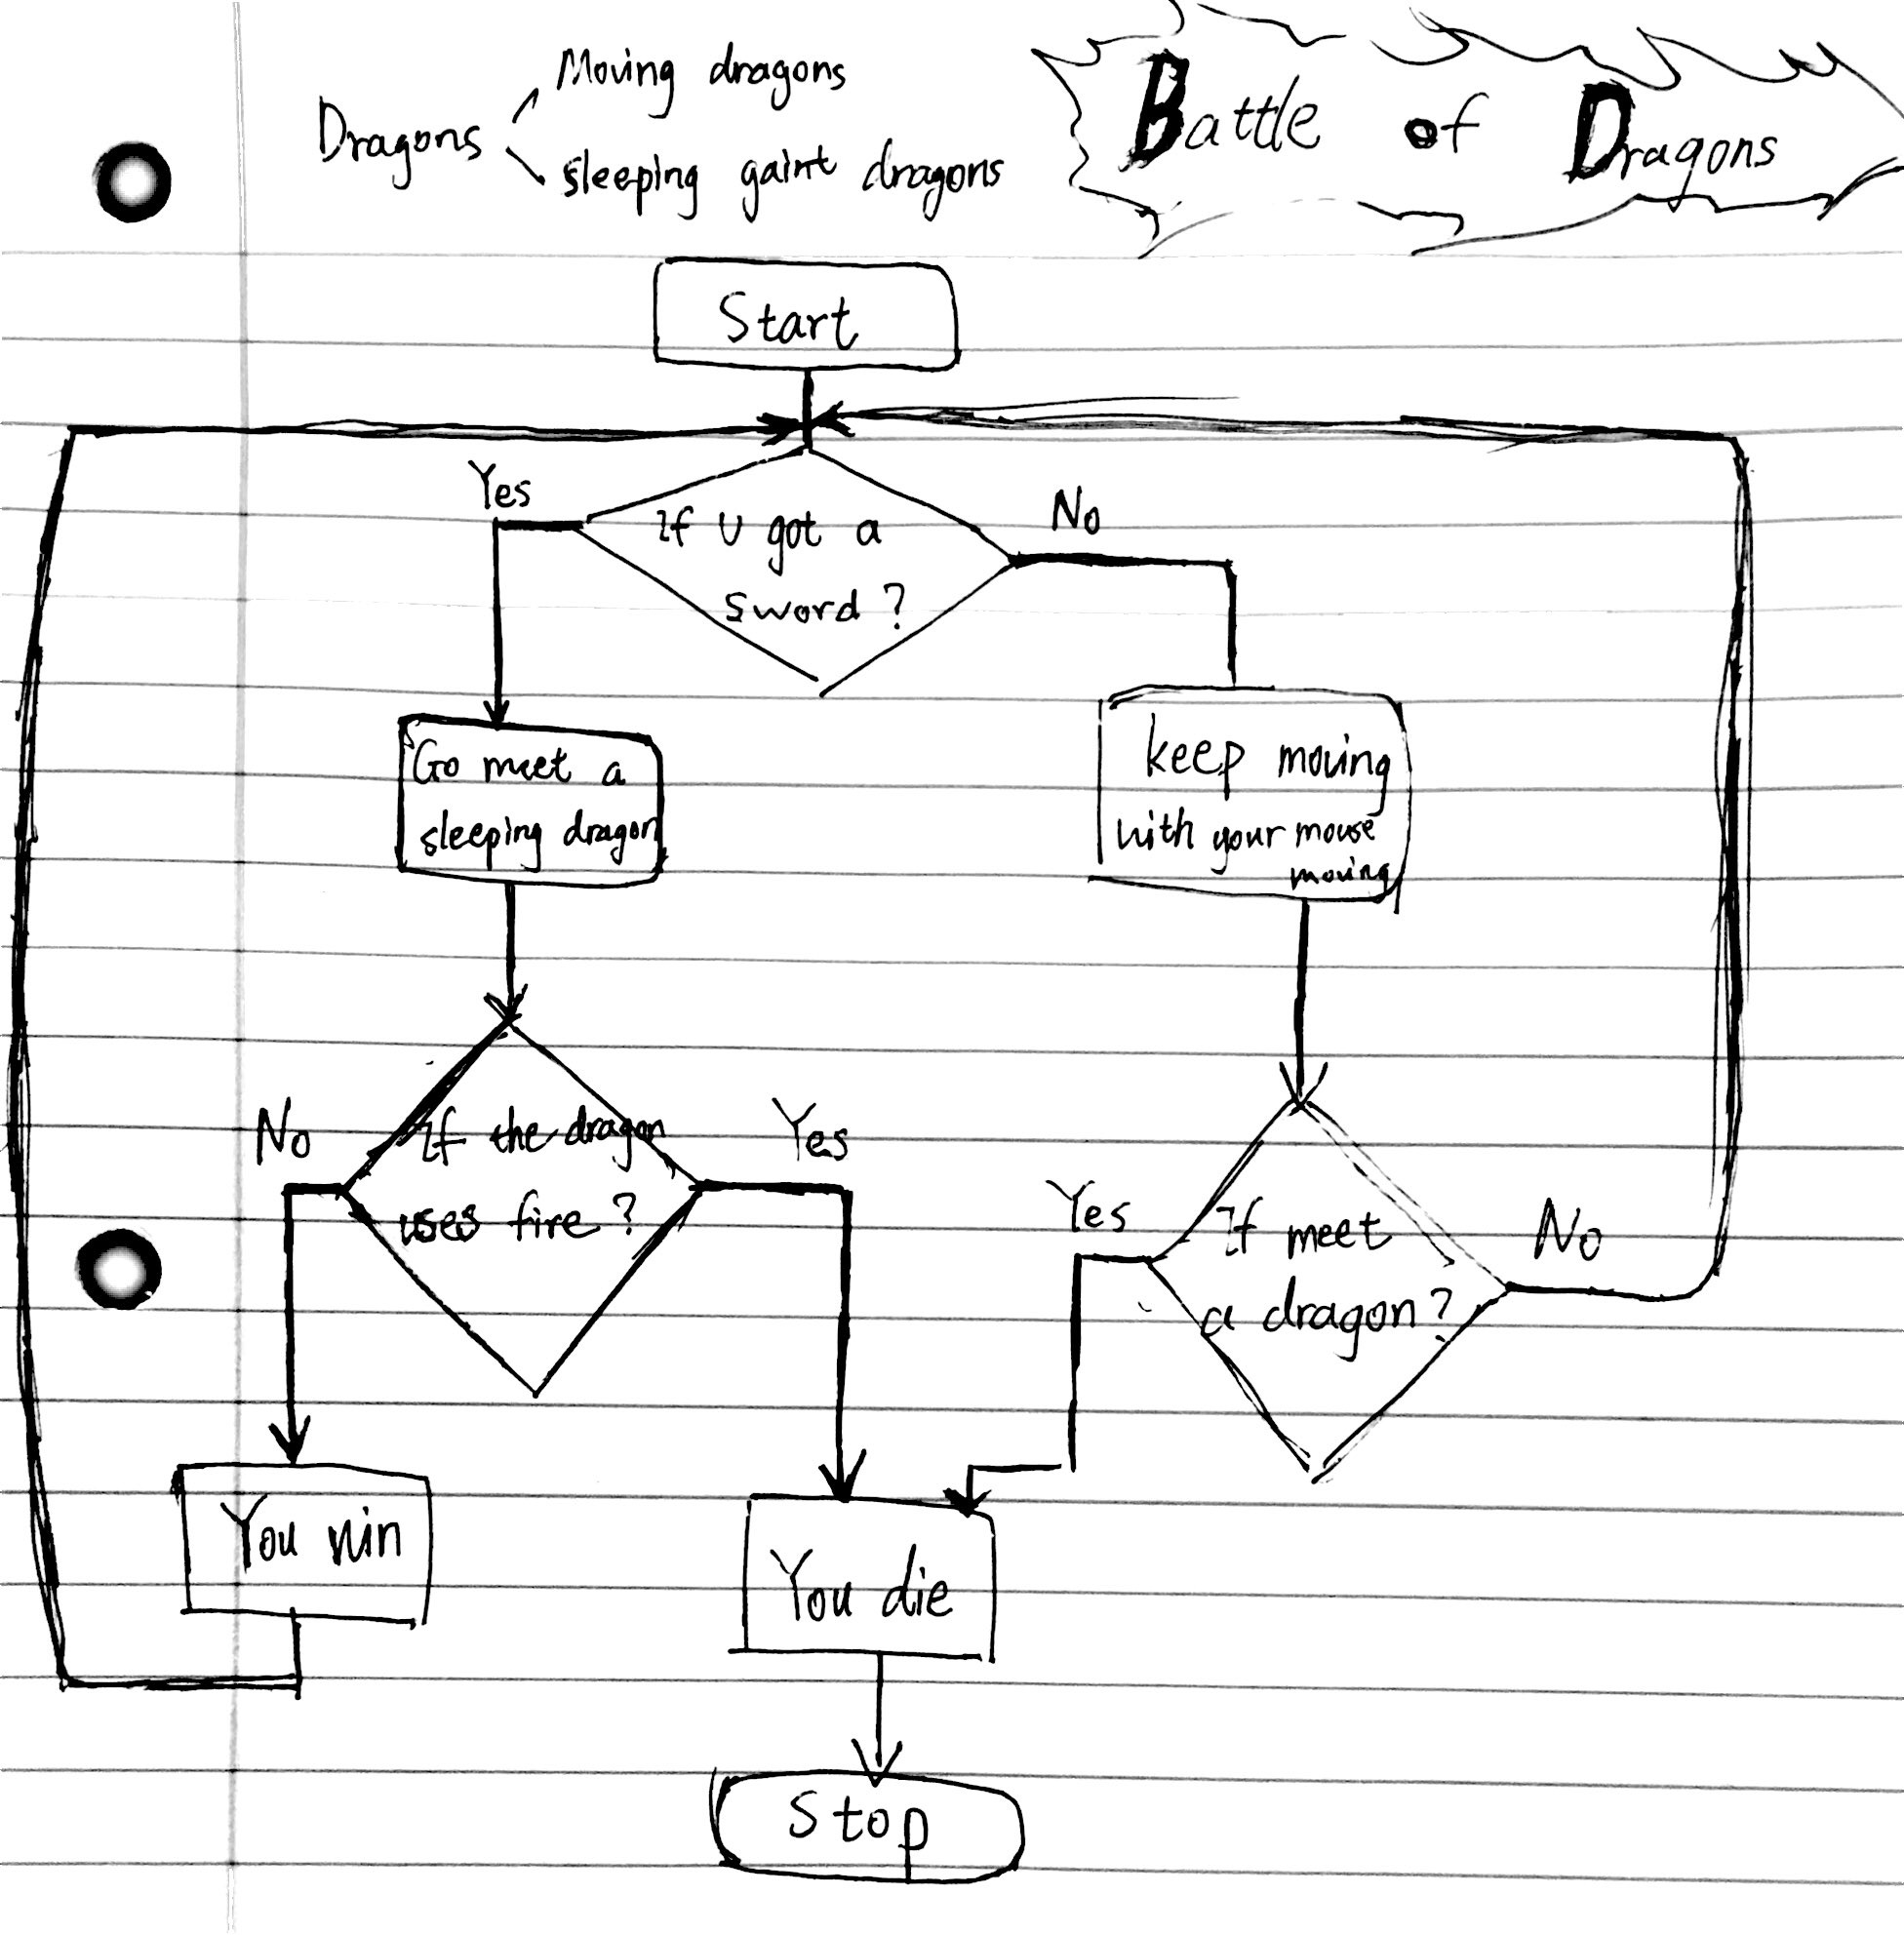 Moving dragons
Dragons
sleeping gaint dragons
Battle of Dragons
Start
Yes
No
If U got a
sword ?
Go meet a
sleeping dragon
keep moving
with your mouse
moving
No
If the dragon
uses fire ?
Yes
Yes
If meet
a dragon ?
No
You win
You die
Stop